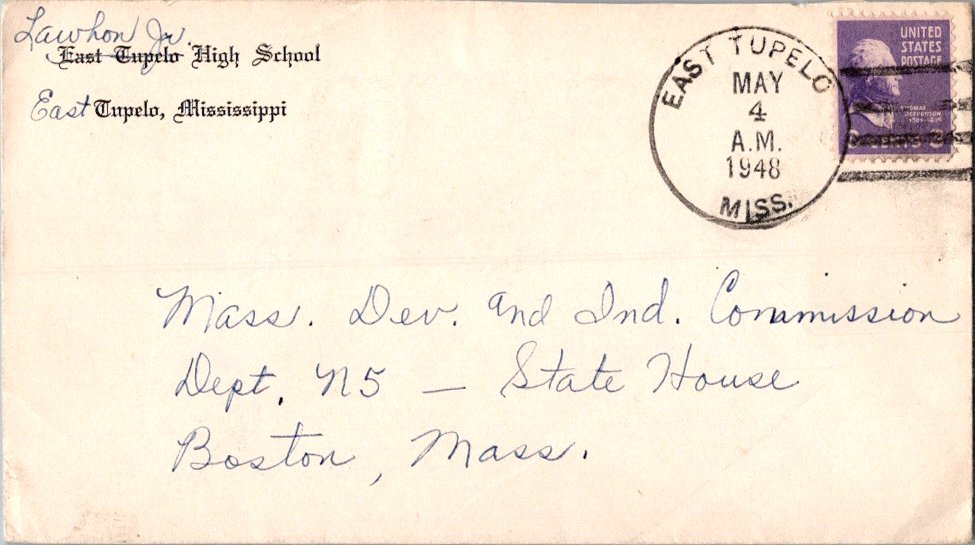 Lawhon Jr.
East Tupelo High School
East Tupelo, Mississippi
EAST TUPELO
MAY
4
A.M.
1948
MISS.
UNITED
STATES
POSTAGE
THOMAS
JEFFERSON
3 CENTS 3
Mass. Dev. and Ind. Commission
Dept. N5 — State House
Boston, Mass.